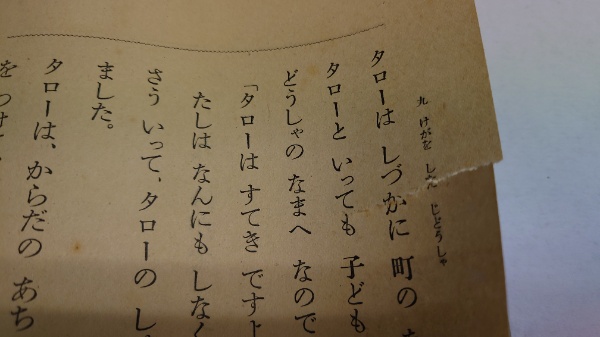 九 けがを した じどうしゃ
タローは しづかに 町の
タローと いっても 子ども
どうしゃの なまへ なので
「タローは すてき ですよ
たしは なんにも しなく
さう いって、タローの し
ました。
タローは、からだの あち
を つけ